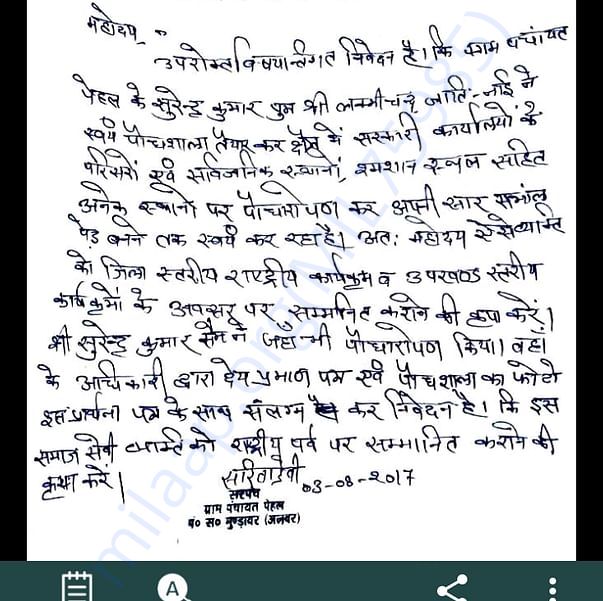 महोदय,
उपरोक्त विषयान्तर्गत निवेदन है। कि ग्राम पंचायत
पेहल के सुरेन्द्र कुमार पुत्र श्री लक्ष्मीचन्द जाति-नाई ने
स्वयं पौधशाला तैयार कर क्षेत्र में सरकारी कार्यालयों के
परिसरों एवं सार्वजनिक स्थानों, श्मशान स्थल सहित
अनेक स्थानों पर पौधारोपण कर अपनी सार सम्भाल
पेड़ बनने तक स्वयं कर रहा है। अतः महोदय ऐसे व्यक्ति
को जिला स्तरीय राष्ट्रीय कार्यक्रम व उपखण्ड स्तरीय
कार्यक्रमों के अवसर पर सम्मानित कराने की कृपा करें।
श्री सुरेन्द्र कुमार सैन ने जहां भी पौधारोपण किया। वहां
के अधिकारी द्वारा देय प्रमाण पत्र एवं पौधशाला का फोटो
इस प्रार्थना पत्र के साथ संलग्न कर निवेदन है। कि इस
समाज सेवी व्यक्ति को राष्ट्रीय पर्व पर सम्मानित कराने की
कृपा करें।
सरिता देवी 03-08-2017
सरपंच
ग्राम पंचायत पेहल
पं० स० मुण्डावर (अलवर)
milaap.org(MIL75985)
A